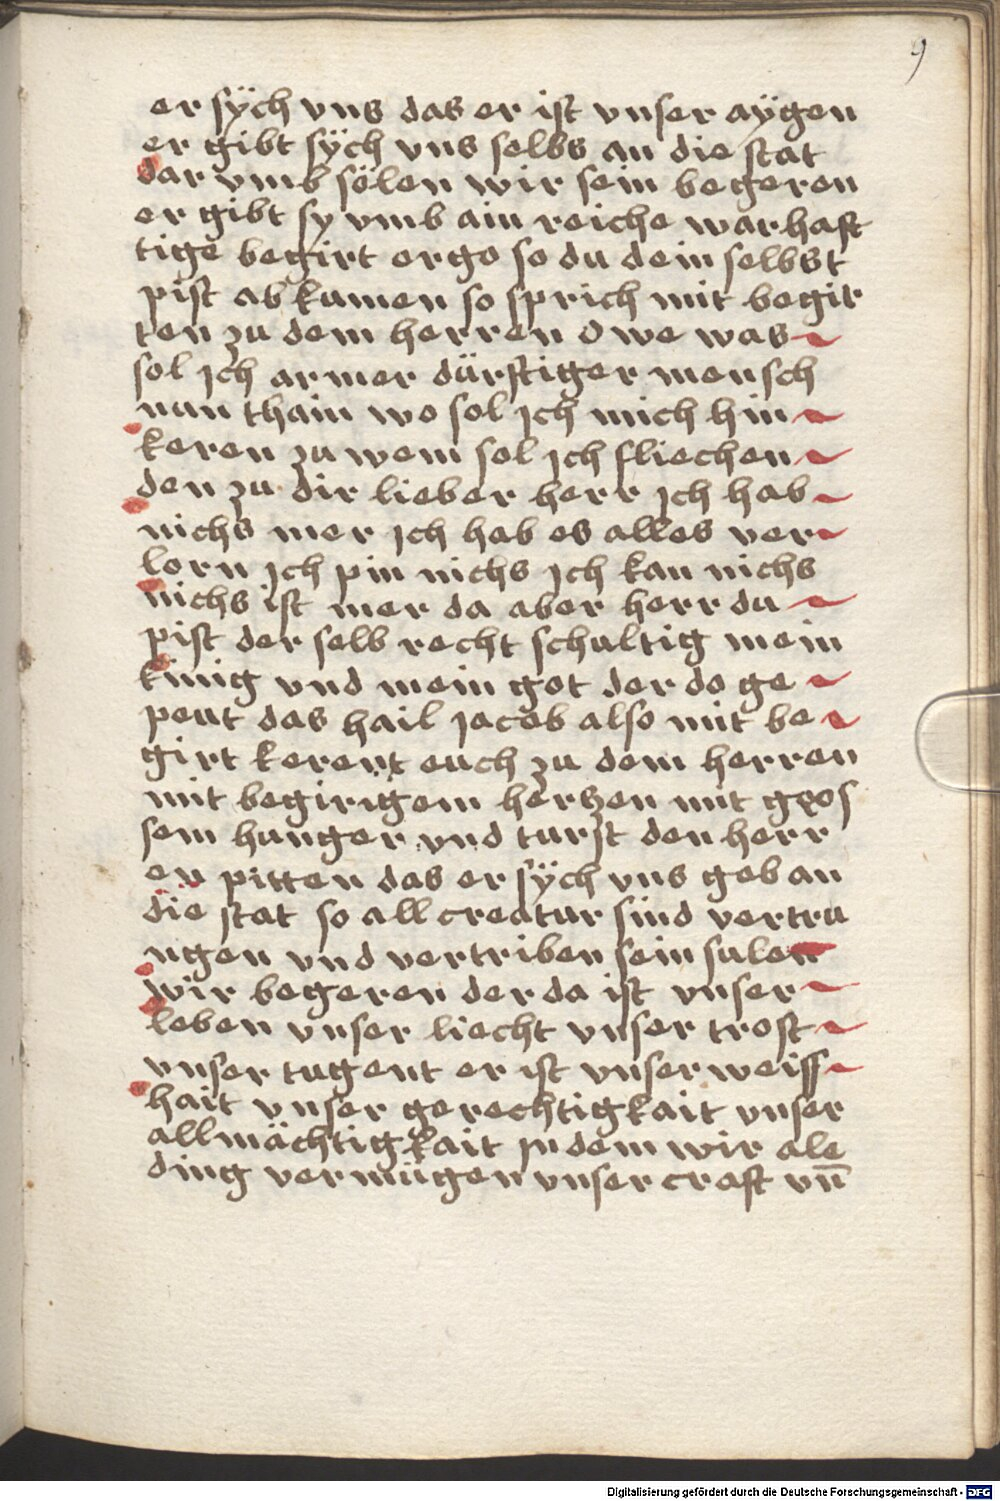 9
er sÿch vns das er ist vnser aÿgen
er gibt sÿch vns selbs an die stat
dar vmb sölen wir sein begeren
er gibt sy vmb ain reiche warhaft
tige begirt ergo so du dein selbst
pist ab kumen so sprich mit begir
ten zu dem herren O we was
sol jch armer dürftiger mensch
nun thain wo sol jch mich hin
keren zu wem sol jch fliechen
den zu dir lieber herr jch hab
nichs mer jch hab es alles ver
lorn jch pin nichs jch kan nichs
nichs ist mer da aber herr du
pist der selb recht schultig mein
kinig vnd mein got der do ge
peut das hail jacob also mit be
girt kerent euch zu dem herren
mit begirigem hertzen mit gros
sem hunger vnd turst den herr
en pitten das er sÿch vns geb an
die stat so all creatur sind vertru
ngen vnd vertriben sein sulen
wir begeren der da ist vnser
leben vnser liecht vnser trost
vnser tugent er ist vnser weiss
hait vnser gerechtigkait vnser
allmächtigkait jn dem wir ale
ding vermügen vnser craft vn̄
Digitalisierung gefördert durch die Deutsche Forschungsgemeinschaft - DFG